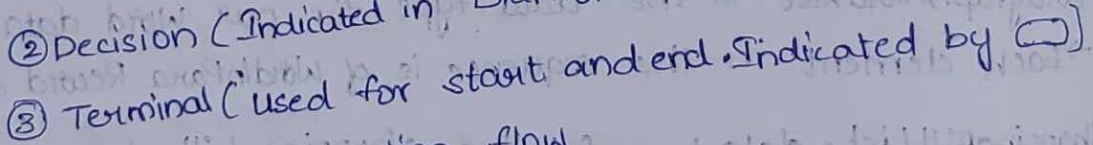 ② Decision (Indicated in
③ Terminal (used for start and end. Indicated by ▭)
flow